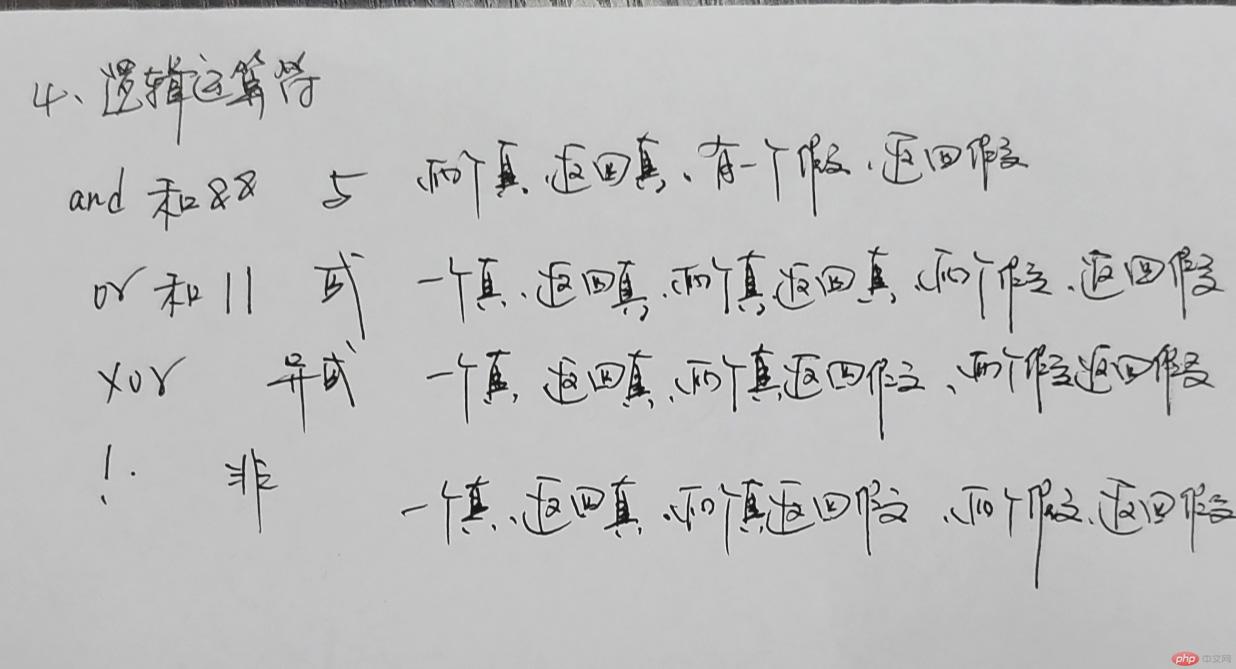 4、逻辑运算符
and 和 && 与 两个真、返回真、有一个假、返回假
or 和 || 或 一个真、返回真、两个真返回真、两个假、返回假
xor 异或 一个真、返回真、两个真返回假、两个假返回假
! 非 一个真、返回真、两个真返回假、两个假、返回假
php 中文网